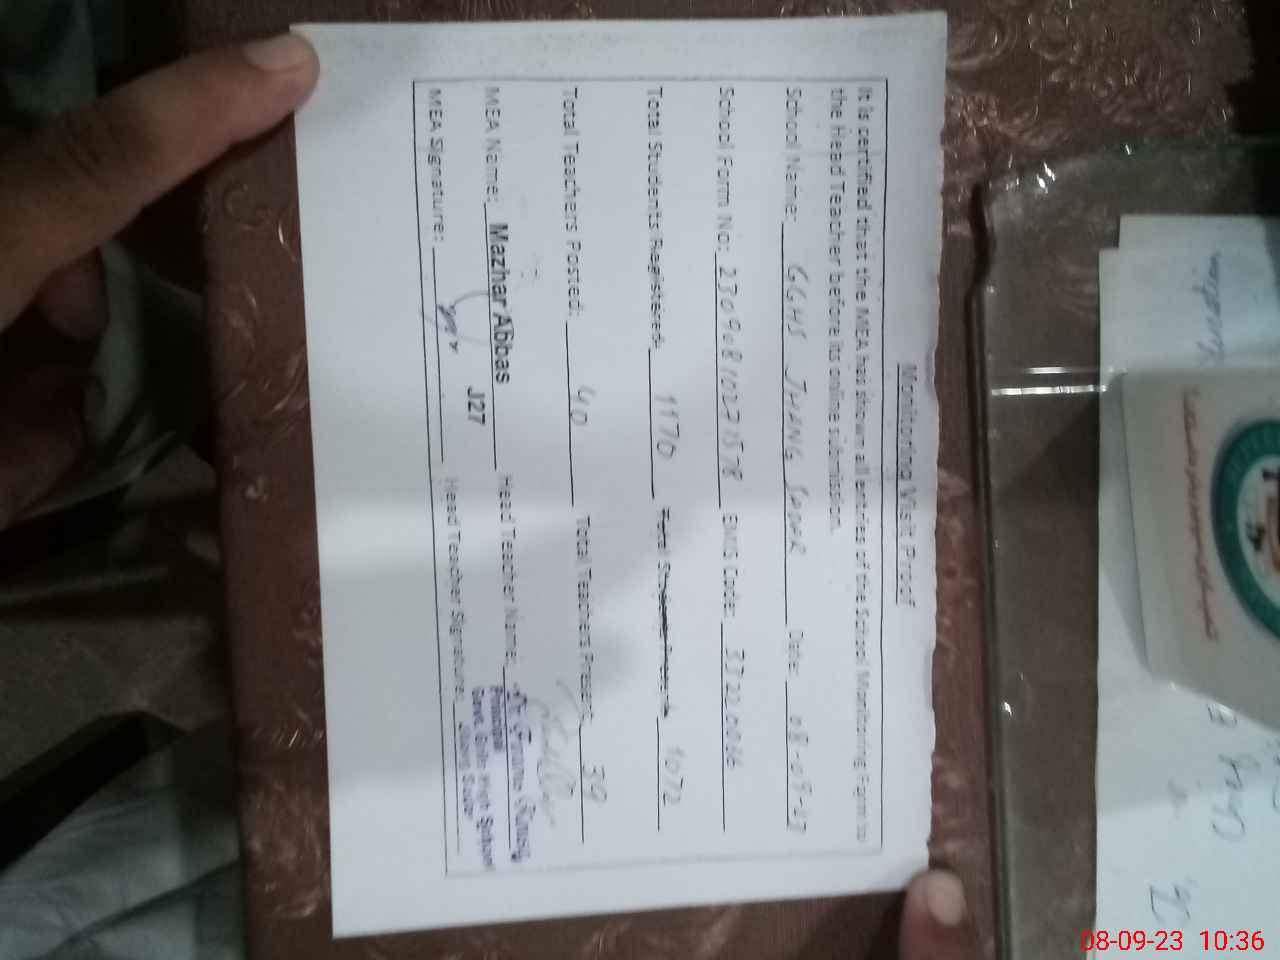 Monitoring Visit Proof
It is certified that the MEA has shown all entries of the School Monitoring Form to
the Head Teacher before its online submission.
School Name: GGHS JHANG SADAR Date: 08-09-23
School Form No: EMIS Code: 33220066
Total Students Registered: 1176 Total Students Present 1072
Total Teachers Posted: 40 Total Teachers Present 39
MEA Name: Mazhar Abbas J27 Head Teacher Name:
MEA Signature: Head Teacher Signature:
Principal
Govt. Girls High School
Jhang Sadar
08-09-23 10:36